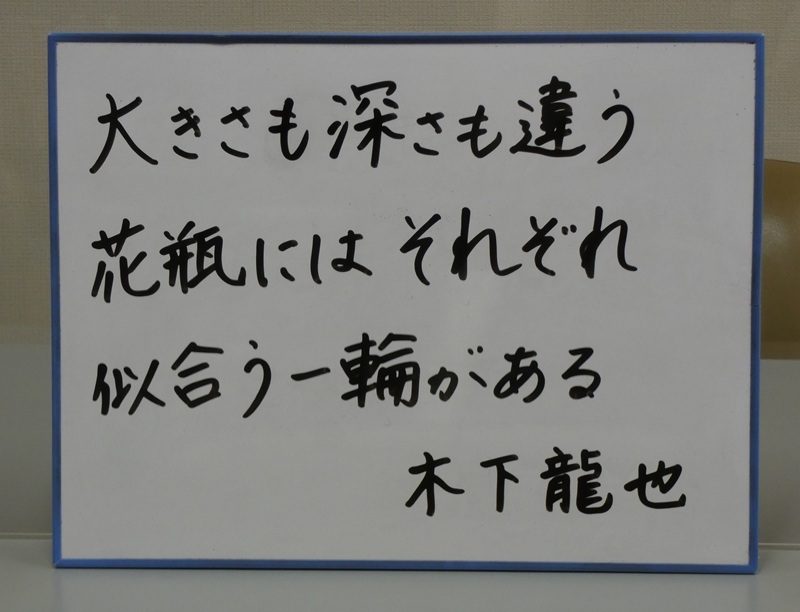 大きさも深さも違う
花瓶にはそれぞれ
似合う一輪がある
木下龍也